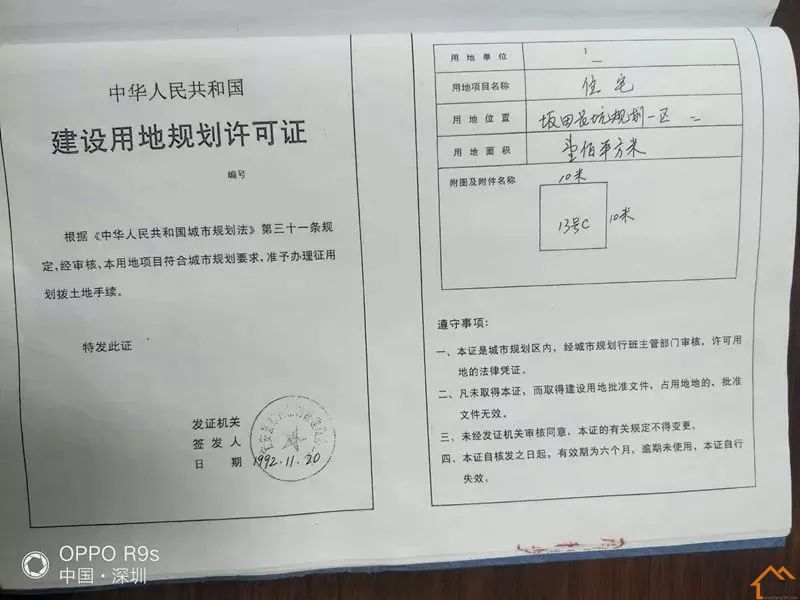 中华人民共和国
建设用地规划许可证
编号
根据《中华人民共和国城市规划法》第三十一条规
定,经审核,本用地项目符合城市规划要求,准予办理征用
划拨土地手续。
特发此证
发证机关
签发人
日期 1992.11.20
用地单位
用地项目名称 住宅
用地位置 坂田长坑规划一区
用地面积 壹佰平方米
附图及附件名称
10米
13号C
10米
遵守事项:
一、本证是城市规划区内,经城市规划行班主管部门审核,许可用
地的法律凭证。
二、凡未取得本证,而取得建设用地批准文件,占用地地的、批准
文件无效。
三、未经发证机关审核同意,本证的有关规定不得变更。
四、本证自核发之日起,有效期为六个月,逾期未使用、本证自行
失效。
OPPO R9s
中国·深圳